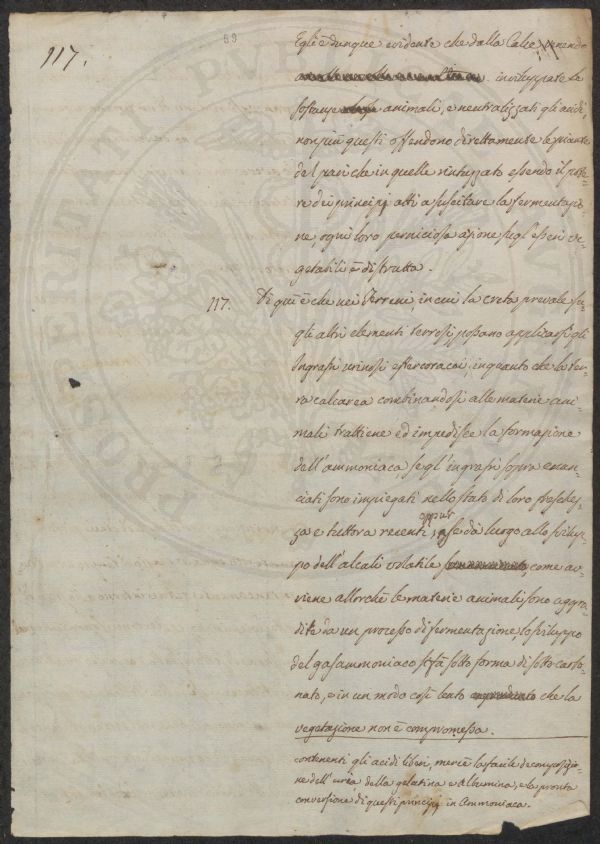 89
117.
Egli è dunque evidente che dalla Calce venendo
inviluppate le
sostanze animali, e neutralizzati gli acidi,
non più questi offendono direttamente le piante
del pari che in quelle rintuzzato essendo il pote-
re dei principj atti a suscitare la fermentazio-
ne, ogni loro perniciosa azione sugl'esseri ve-
getabili è distrutta.
117. Di qui è che nei Terreni, in cui la creta prevale su
gli altri elementi terrosi possano applicarsi gli
Ingrassi urinosi e stercoracei, in quanto che la ter-
ra calcarea combinandosi alle materie ani-
mali trattiene ed impedisce la formazione
dell'ammoniaca, se gl'ingrassi sopra enun-
ciati sono impiegati nello stato di loro freschez-
za e tuttora recenti, oppur se dà luogo allo svilup-
po dell'alcali volatile come av-
viene allorchè le materie animali sono aggre-
dite da un processo di fermentazione, lo sviluppo
del gas ammoniaco si fa sotto forma di sotto carbo-
nato, e in un modo così lento che la
vegetazione non è compromessa.
contenenti gli acidi liberi, mercè la facile decomposizio-
ne dell'urea, della gelatina e Albumina, e la pronta
conversione di questi principj in Ammoniaca.